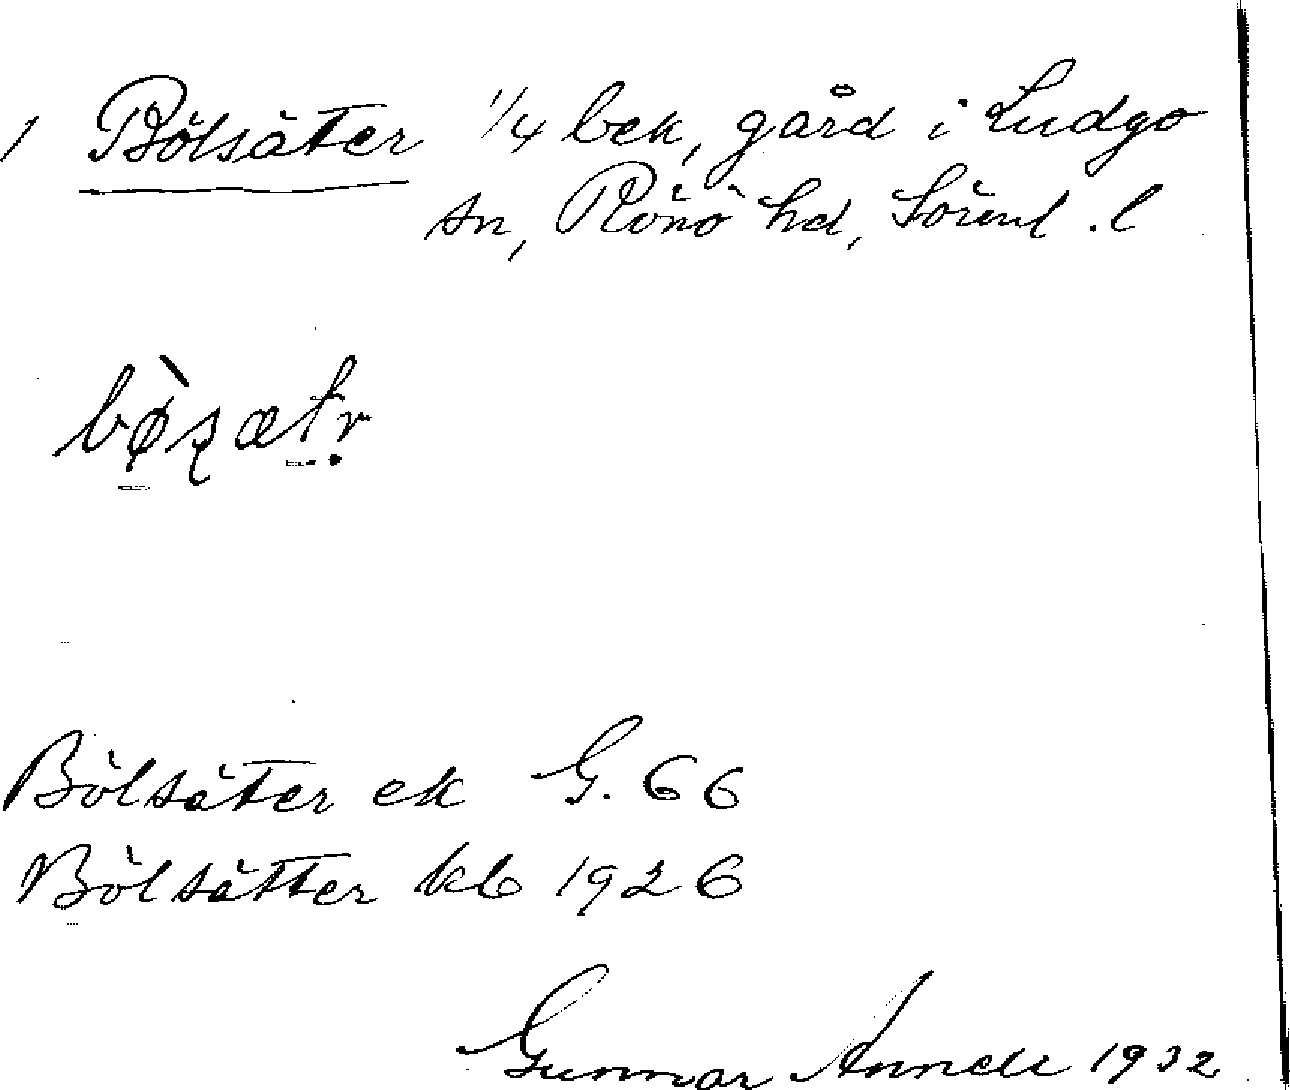 1 Bölsäter 1/4 bek, gård i Ludgo
sn, Rönö hd, Söderml. l
bø̀sætr
Bölsäter ek G. 66
Bölsätter kb 1926
Gunnar 1932